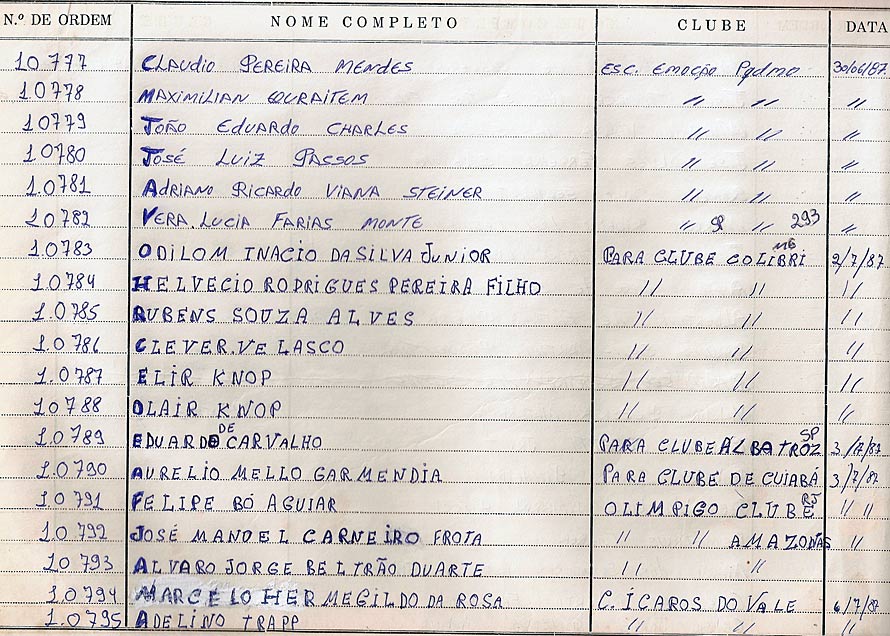 N.º DE ORDEM NOME COMPLETO CLUBE DATA
10777 CLAUDIO PEREIRA MENDES ESC. EMOÇÃO Pqdmo 30/06/87
10778 MAXIMILIAN QURAITEM " " "
10779 JOÃO EDUARDO CHARLES " " "
10780 JOSÉ LUIZ PASSOS " " "
10781 ADRIANO RICARDO VIANA STEINER " " "
10782 VERA LUCIA FARIAS MONTE " " 293 "
10783 ODILOM INACIO DA SILVA JUNIOR PARA CLUBE COLIBRI MG 2/7/87
10784 HELVECIO RODRIGUES PEREIRA FILHO " " "
10785 RUBENS SOUZA ALVES " " "
10786 CLEVER VELASCO " " "
10787 ELIR KNOP " " "
10788 OLAIR KNOP " " "
10789 EDUARDO DE CARVALHO PARA CLUBE ALBATROZ SP 3/7/87
10790 AURELIO MELLO GARMENDIA PARA CLUBE DE CUIABÁ 3/7/87
10791 FELIPE BÓ AGUIAR OLIMPIGO CLUBE RJ " "
10792 JOSÉ MANOEL CARNEIRO FROTA " " AMAZONAS "
10793 ALVARO JORGE BELTRÃO DUARTE " "
10794 MARCELO HERMEGILDO DA ROSA C. ÍCAROS DO VALE 6/7/87
10795 ADELINO TRAPP " " "